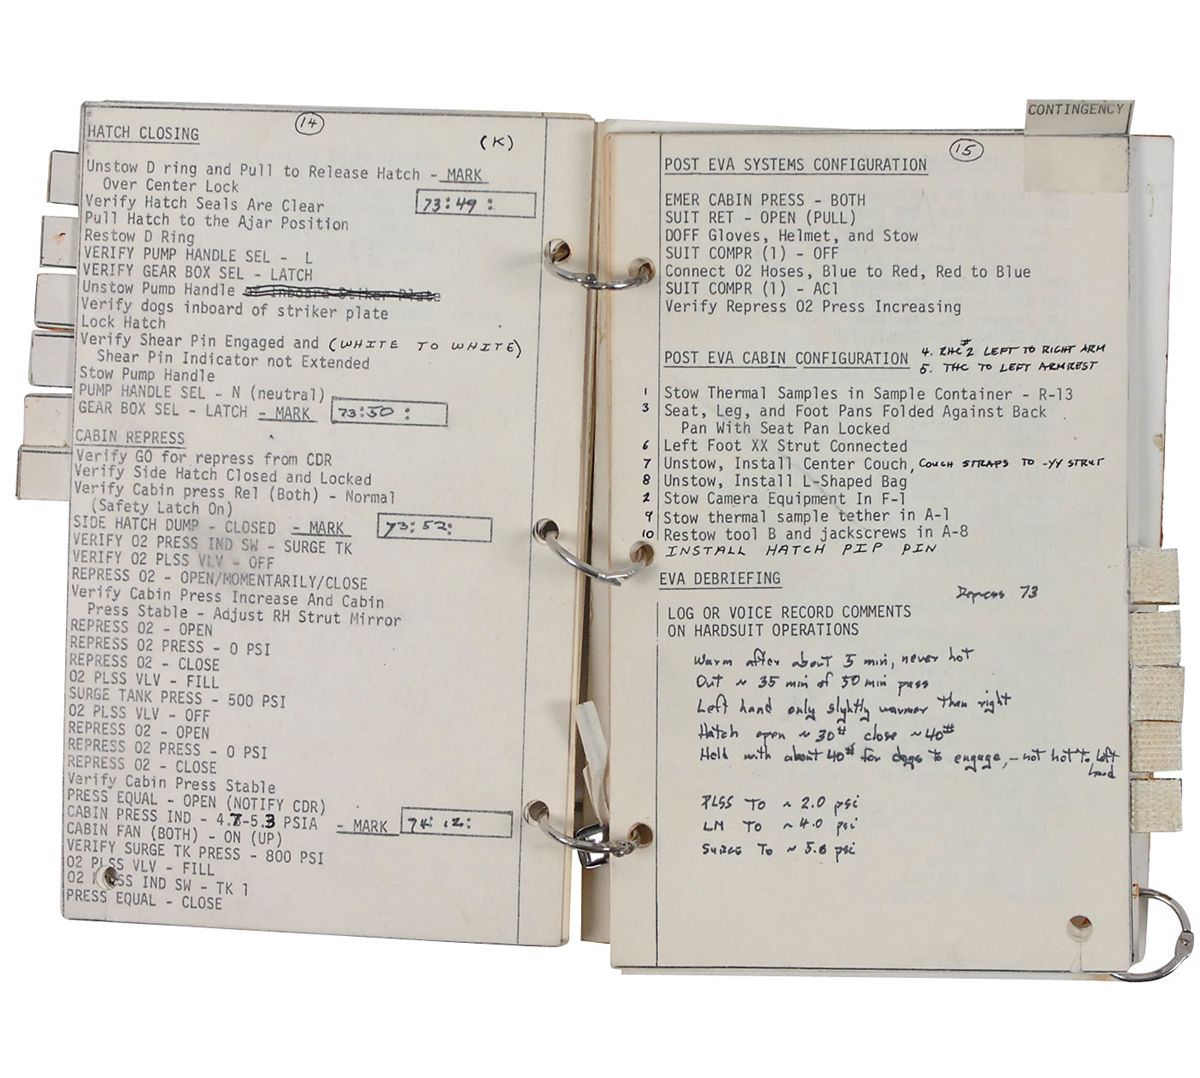 14
HATCH CLOSING
(K)
Unstow D ring and Pull to Release Hatch - MARK
Over Center Lock
Verify Hatch Seals Are Clear 73:49 :
Pull Hatch to the Ajar Position
Restow D Ring
VERIFY PUMP HANDLE SEL - L
VERIFY GEAR BOX SEL - LATCH
Unstow Pump Handle at Inboard Striker Plate
Verify dogs inboard of striker plate
Lock Hatch
Verify Shear Pin Engaged and (WHITE TO WHITE)
Shear Pin Indicator not Extended
Stow Pump Handle
PUMP HANDLE SEL - N (neutral)
GEAR BOX SEL - LATCH - MARK 73:50 :
CABIN REPRESS
Verify GO for repress from CDR
Verify Side Hatch Closed and Locked
Verify Cabin press Rel (Both) - Normal
(Safety Latch On)
SIDE HATCH DUMP - CLOSED - MARK 73:52:
VERIFY O2 PRESS IND SW - SURGE TK
VERIFY O2 PLSS VLV - OFF
REPRESS O2 - OPEN/MOMENTARILY/CLOSE
Verify Cabin Press Increase And Cabin
Press Stable - Adjust RH Strut Mirror
REPRESS O2 - OPEN
REPRESS O2 PRESS - 0 PSI
REPRESS O2 - CLOSE
O2 PLSS VLV - FILL
SURGE TANK PRESS - 500 PSI
O2 PLSS VLV - OFF
REPRESS O2 - OPEN
REPRESS O2 PRESS - 0 PSI
REPRESS O2 - CLOSE
Verify Cabin Press Stable
PRESS EQUAL - OPEN (NOTIFY CDR)
CABIN PRESS IND - 4.7-5.3 PSIA - MARK 74:12:
CABIN FAN (BOTH) - ON (UP)
VERIFY SURGE TK PRESS - 800 PSI
O2 PLSS VLV - FILL
O2 PRESS IND SW - TK 1
PRESS EQUAL - CLOSE
CONTINGENCY
15
POST EVA SYSTEMS CONFIGURATION
EMER CABIN PRESS - BOTH
SUIT RET - OPEN (PULL)
DOFF Gloves, Helmet, and Stow
SUIT COMPR (1) - OFF
Connect O2 Hoses, Blue to Red, Red to Blue
SUIT COMPR (1) - AC1
Verify Repress O2 Press Increasing
POST EVA CABIN CONFIGURATION 4. RHC #2 LEFT TO RIGHT ARM
5. THC TO LEFT ARMREST
1 Stow Thermal Samples in Sample Container - R-13
3 Seat, Leg, and Foot Pans Folded Against Back
Pan With Seat Pan Locked
6 Left Foot XX Strut Connected
7 Unstow, Install Center Couch, COUCH STRAPS TO -YY STRUT
8 Unstow, Install L-Shaped Bag
2 Stow Camera Equipment In F-1
9 Stow thermal sample tether in A-1
10 Restow tool B and jackscrews in A-8
INSTALL HATCH PIP PIN
EVA DEBRIEFING
Repress 73
LOG OR VOICE RECORD COMMENTS
ON HARDSUIT OPERATIONS
Warm after about 5 min, never hot
Out ~ 35 min of 50 min pass
Left hand only slightly warmer than right
Hatch open ~30# close ~40#
Held with about 40# for dogs to engage, - not hot to left
hand
PLSS TO ~ 2.0 psi
LM TO ~ 4.0 psi
SURGE TO ~ 5.0 psi